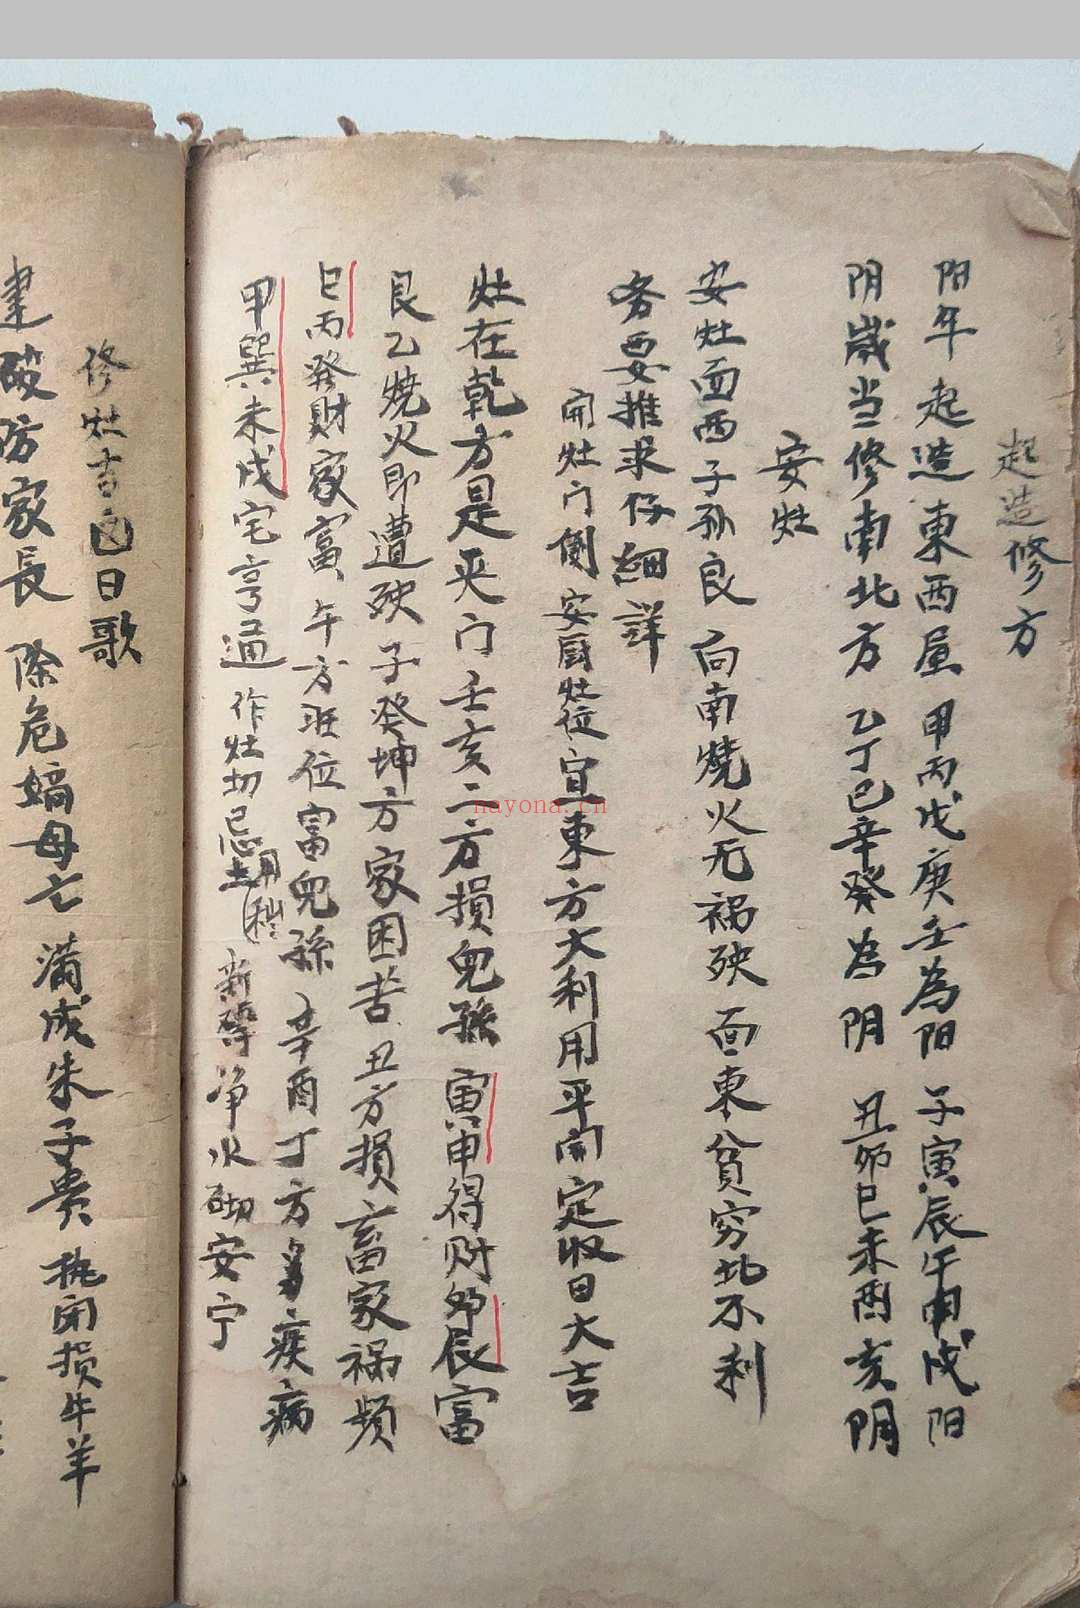 起造修方
阳年起造東西屋甲丙戊庚壬為阳子寅辰午申戌阳
阴歲当修南北方乙丁巳辛癸為阴丑卯巳未酉亥阴
安灶
安灶面西子孙良向南燒火无祸殃面東貧穷北不利
务要推求仔細詳
開灶门側安厨灶位宜東方大利用平開定收日大吉
灶在乾方是灭门壬亥二方損兒孫寅申得财卯辰富
艮乙燒火即遭殃子癸坤方家困苦丑方損畜家祸頻
巳丙發財家富午方旺位富兒孫辛酉丁方多疾病
甲巽未戌宅亨通作灶切忌用土新磚净水砌安宁
修灶吉凶日歌
建破防家長除危嫡母亡满成朱子貴执闭损牛羊
nayona.cn